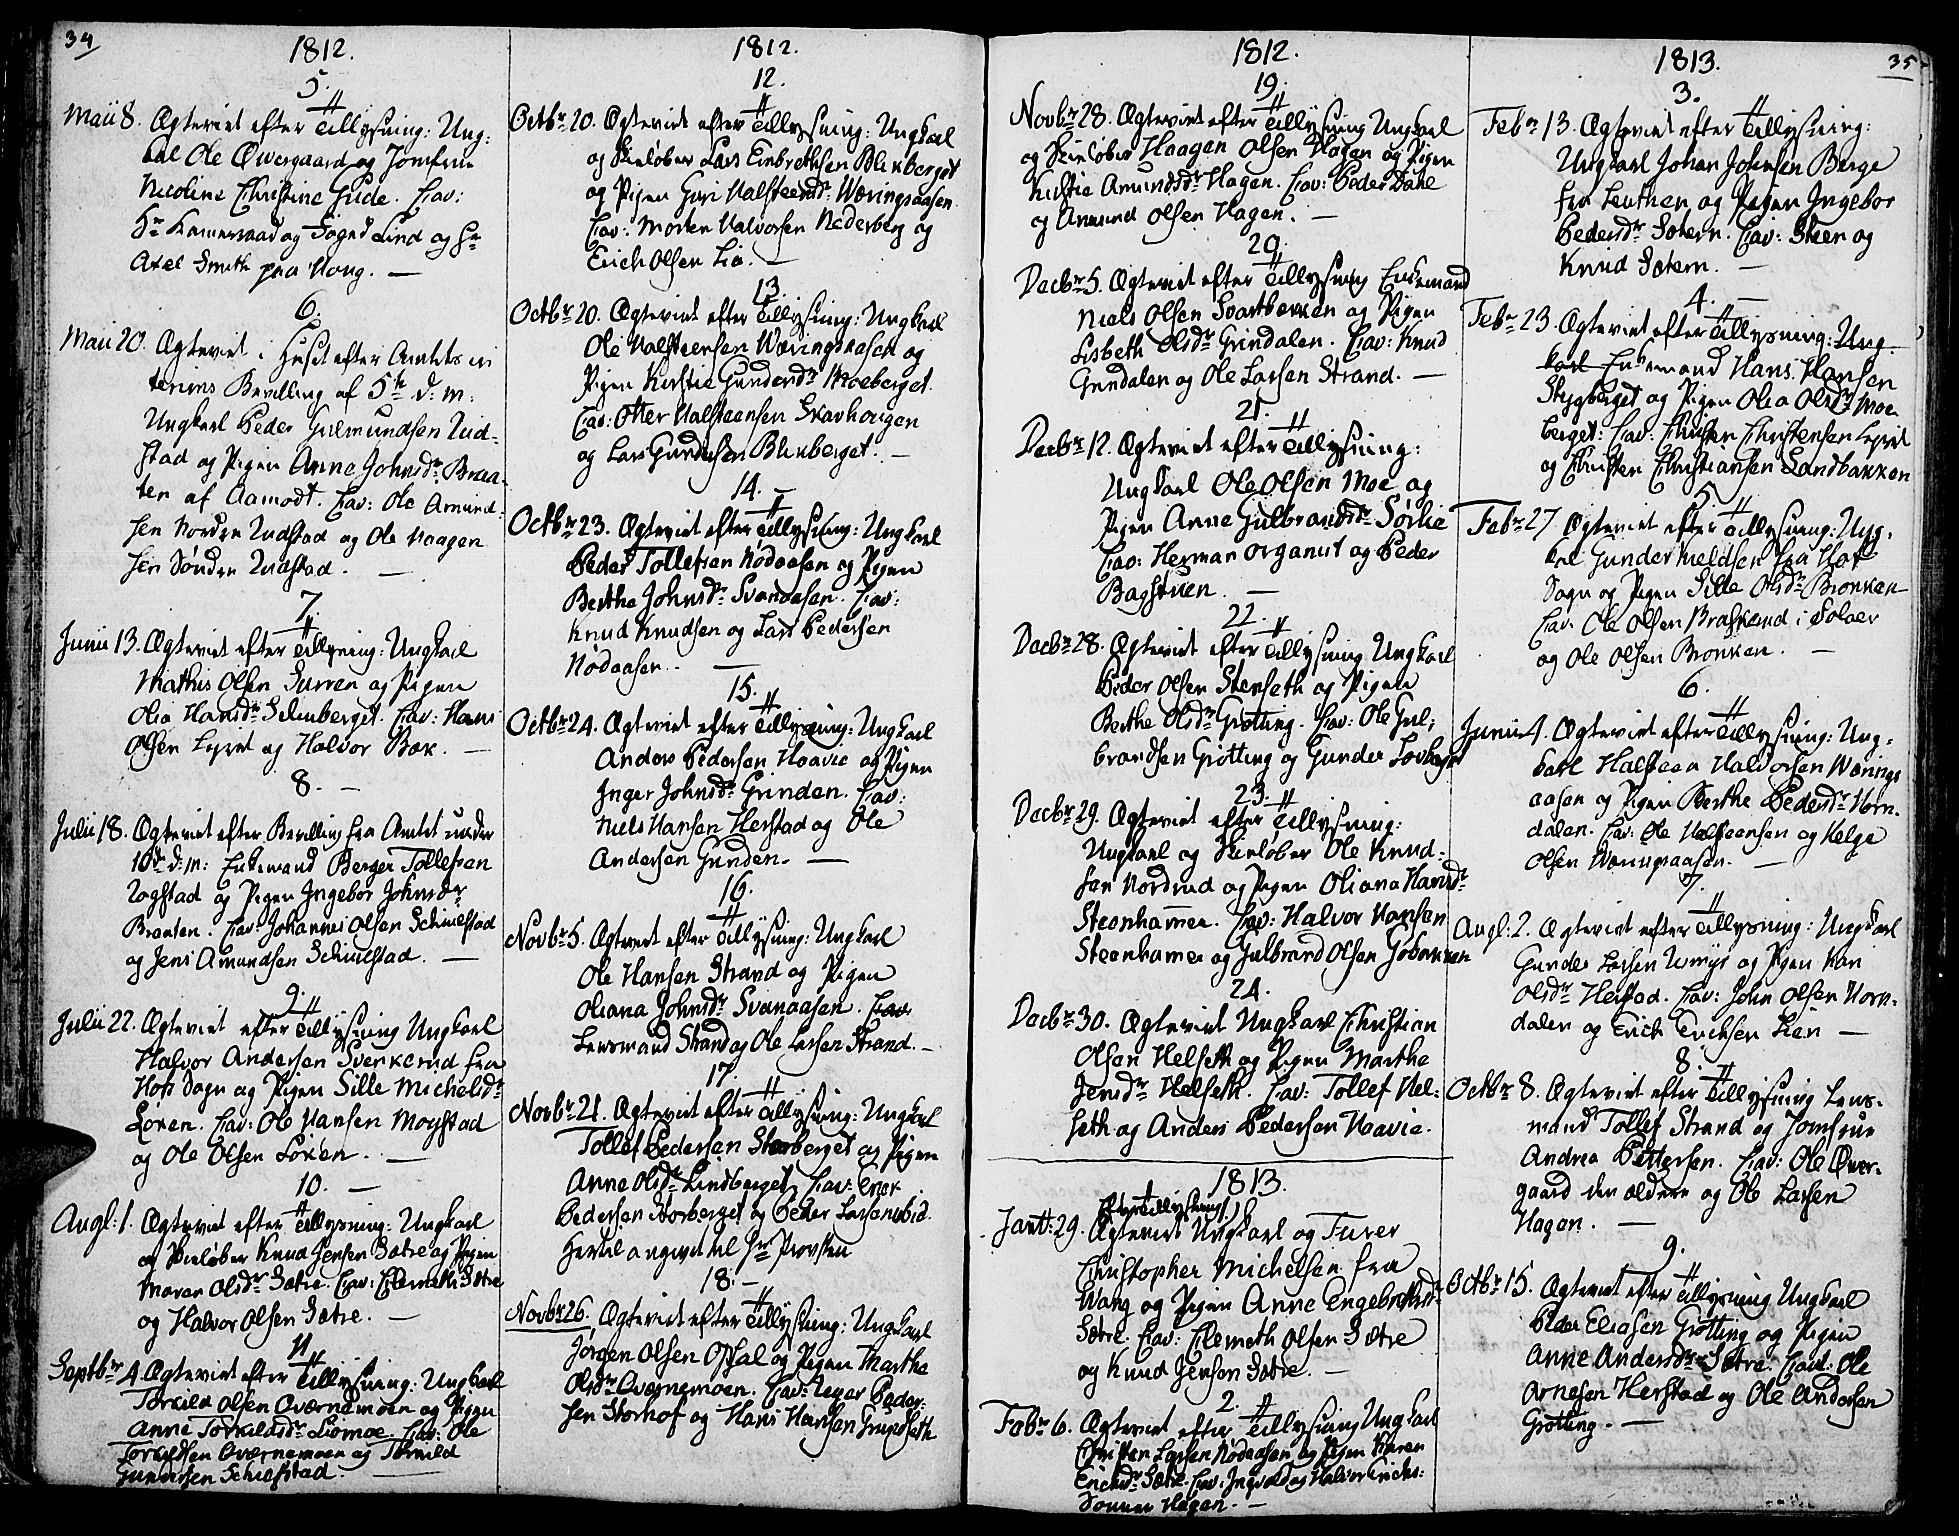 34
1812.
5.
Maii 8. Ægteviet efter Tillysning: Ung:
kal Ole Øvergaard og Jomfrue
Nicoline Christine Gude. Cav:
Hr Kamerraad og Foged Lind og Hr
Axel Smith paa Houg. —
6.
Maii 20. Ægteviet i Huset efter Amtets in
terims Bevilling af 5te d: M:
Ungkarl Peder Gulmundsen Rud-
stad og Pigen Anne Johnsdr Braa-
ten af Aamodt. Cav: Ole Amund-
sen Nordre Rudstad og Ole Haagen
sen Søndre Rudstad. —
7.
Junii 13. Ægteviet efter Tillysning: Ungkarl
Mathis Olsen Surren og Pigen
Olia Hansdr Cav: Hans
Olsen og Halvor Bak. —
8. —
Julii 18. Ægteviet efter Bevilling fra Amtet under
10de d: M: Enkemand Berger Tollefsen
Rogstad og Pigen Ingebor Johnsdr
Braaten. Cav: Johannes Olsen Schiulstad
og Jens Amundsen Schiulstad. —
9.
Julii 22. Ægteviet efter Tillysning Ungkarl
Halvor Andersen Sverkerud fra
Hofs Sogn og Pigen Sille Michelsdr
Løken. Cav: Ole Hansen Moystad
og Ole Olsen Løken. —
10. —
Augl: 1. Ægteviet efter Tillysning: Ungkarl
og Skieløber Knud Jensen Sætre og Pigen
Maren Olsdr Sætre. Cav: Clemeth Sætre
og Halvor Olsen Sætre. —
11.
Septbr 4. Ægteviet efter Tillysning: Ungkarl
Torkild Olsen Qværnemoen og Pigen
Anne Torkildsdr Liømoe. Cav: Ole
Torkildsen Qværnemoen og Torkild
Gundersen Schiefstad. —
1812.
12.
Octbr 20. Ægteviet efter Tillysning: Ungkarl
og Skieløber Lars Embrethsen Blikberget
og Pigen Guri Halsteensdr: Wæringsaasen
Cav: Morten Halvorsen Nederberg og
Erich Olsen Lia. —
13.
Octbr 20. Ægteviet efter Tillysning: Ungkarl
Ole Halsteensen Wæringsaasen og
Pigen Kirstie Gundersdr Moeberget.
Cav: Otter Halsteensen Skavhougen
og Lars Gundersen Blikberget. —
14. —
Octbr 23. Ægteviet efter Tillysning: Ungkarl
Peder Tollefsen Nødaasen og Pigen
Berthe Johnsdr Svenaasen. Cav:
Knud Knudsen og Lars Pedersen
Nødaasen. —
15.
Octbr 24. Ægteviet efter Tillysning: Ungkarl
Anders Pedersen Haavie og Pigen
Inger Johnsdr Grinden. Cav:
Niels Hansen Herstad og Ole
Andersen Gunden. —
16.
Novbr 5. Ægteviet efter Tillysning: Ungkarl
Ole Hansen Strand og Pigen
Oliana Johnsdr Svenaasen. Cav:
Lensmand Strand og Ole Larsen Strand. —
17.
Novbr 21. Ægteviet efter Tillysning: Ungkarl
Tollef Pedersen Storberget og Pigen
Anne Olsdr Lindberget. Cav:
Pedersen Storberget og Peder Larsen
hertil angivet til Hr Provsten
18. —
Novbr 26. Ægteviet efter Tillysning: Ungkarl
Jörgen Olsen Opsal og Pigen Marthe
Olsdr Qværnemoen. Cav: Peder-
sen Storhof og Hans Hansen Grindseth
1812.
19.
Novbr 28. Ægteviet efter Tillysning Ungkarl
og Skieløber Haagen Olsen Hagen og Pigen
Kirstie Amundsdr Hagen. Cav: Peder Dahl
og Amund Olsen Hagen. —
20.
Decbr 5. Ægteviet efter Tillysning Enkemand
Niels Olsen Svartbækken og Pigen
Lisbeth Olsdr Grindalen. Cav: Knud
Grindalen og Ole Larsen Strand. —
21.
Decbr 12. Ægteviet efter Tillysning:
Ungkarl Ole Olsen Moe og
Pigen Anne Gulbrandsdr Sørlie
Cav: Herman Organist og Peder
Bagstuen. —
22.
Decbr 28. Ægteviet efter Tillysning Ungkarl
Peder Olsen Stenseth og Pigen
Berthe Olsdr Grøtting. Cav: Ole Gul-
brandsen Grøtting og Gunder Lovberget
23.
Decbr 29. Ægteviet efter Tillysning:
Ungkarl og Skieløber Ole Knud-
sen Nordrud og Pigen Oliana Hansdr
Steenhamer. Cav: Halvor Hansen
Steenhamer og Gulbrand Olsen Gobakken
24.
Decbr 30. Ægteviet Ungkarl Christian
Olsen Helseth og Pigen Marthe
Jensdr Helseth. Cav: Tollef Hel-
seth og Anders Pedersen Haavie.
1813.
1.
efter Tillysning
Janu: 29. Ægteviet Ungkarl og Furer
Christopher Michelsen fra
Wang og Pigen Anne Engebretsdr
Sætre. Cav: Clemeth Olsen Sætre
og Knud Jensen Sætre. —
2.
Febr 6. Ægteviet efter Tillysning Ungkarl
Christen Larsen Nødaasen og Pigen Karen
Erichsdr Sætre. Cav: Ingvald og Halvor Erichs-
Sønner Hagen. —
1813.
35
3.
Febr 13. Ægteviet efter Tillysning:
Ungkarl Johan Johnsen Berge
fra Leuthen og Pigen Ingebor
Pedersdr Sætern. Cav: Steen og
Knud Sætern. —
4. —
Febr 23. Ægteviet efter Tillysning: Ung-
karl Enkemand Hans Hansen
Stygberget og Pigen Olia Olsdr Moe
berget: Cav: Christen Christensen
og Christen Christiansen Sandbakken
5.
Febr 27. Ægteviet efter Tillysning: Ung-
karl Gunder Kieldsen fra Hof
Sogn og Pigen Sille Olsdr Bronken
Cav: Ole Olsen Braskerud i Soløer
og Ole Olsen Bronken. —
6.
Junii 4. Ægteviet efter Tillysning: Ung-
karl Halsteen Halvorsen Wærings
aasen og Pigen Berthe Pedersdr Horn-
dalen. Cav: Ole Halsteensen og Helge
Olsen Wæringsaasen. —
7.
Augl: 2. Ægteviet efter Tillysning: Ungkarl
Gunder Larsen og Pigen Kari
Olsdr Herstad. Cav: John Olsen Horn-
dalen og Erich Erichsen Lien —
8.
Octbr 8. Ægteviet efter Tillysning Lens-
mand Tollef Strand og Jomfrue
Andrea Pettersen. Cav: Ole Øver-
gaard den ældere og Ole Larsen
Hagen. —
9.
Octbr 15. Ægteviet efter Tillysning Ungkarl
Peder Eliasen Grøtting og Pigen
Anne Andersdr Sætre. Cav: Ole
Arnesen Herstad og Ole Andersen
Grøtting. —